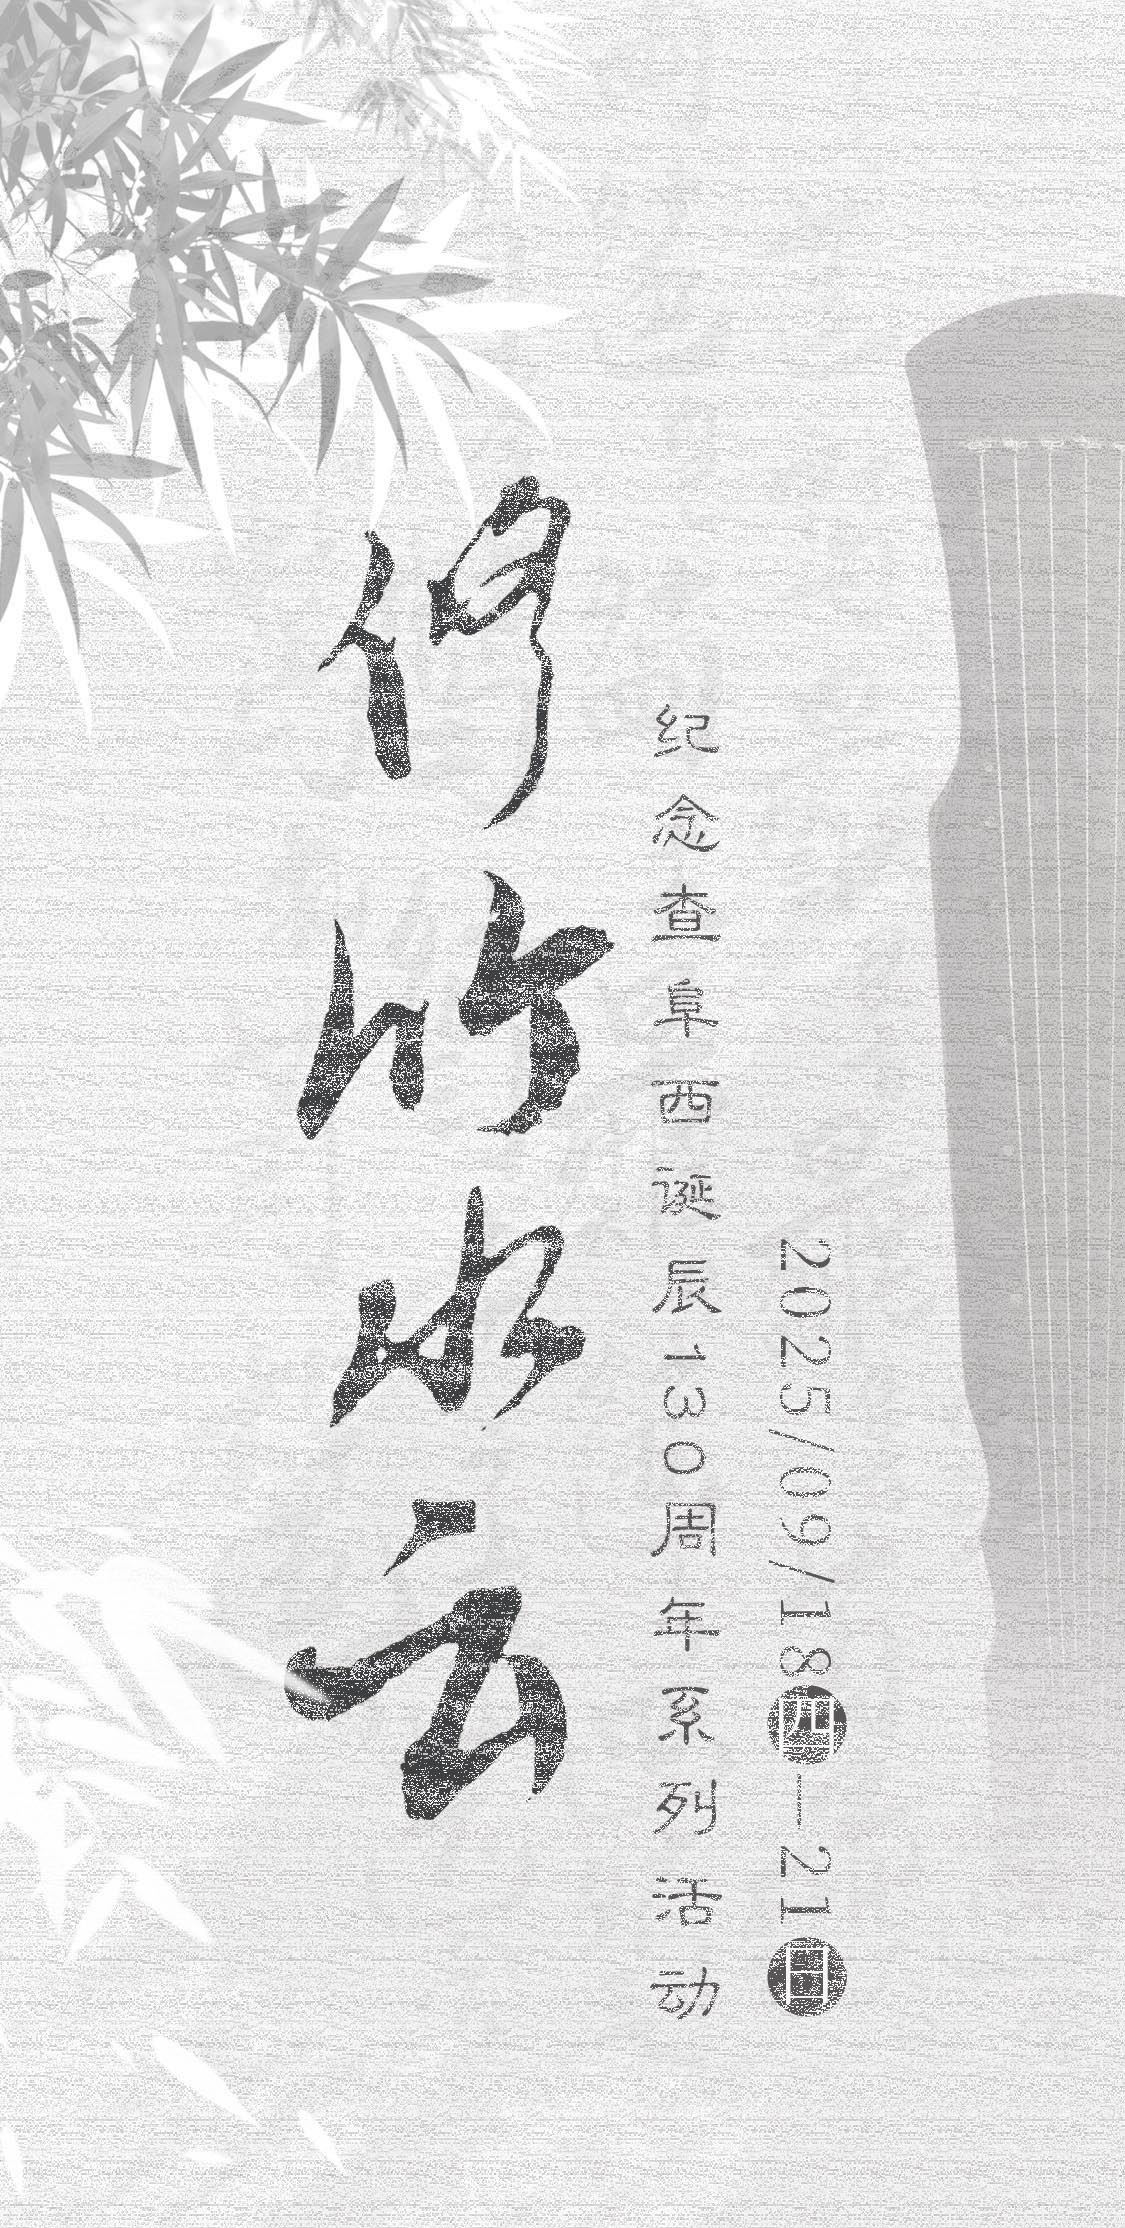 修竹水云
纪念查阜西诞辰130周年系列活动
2025/09/18四—21日